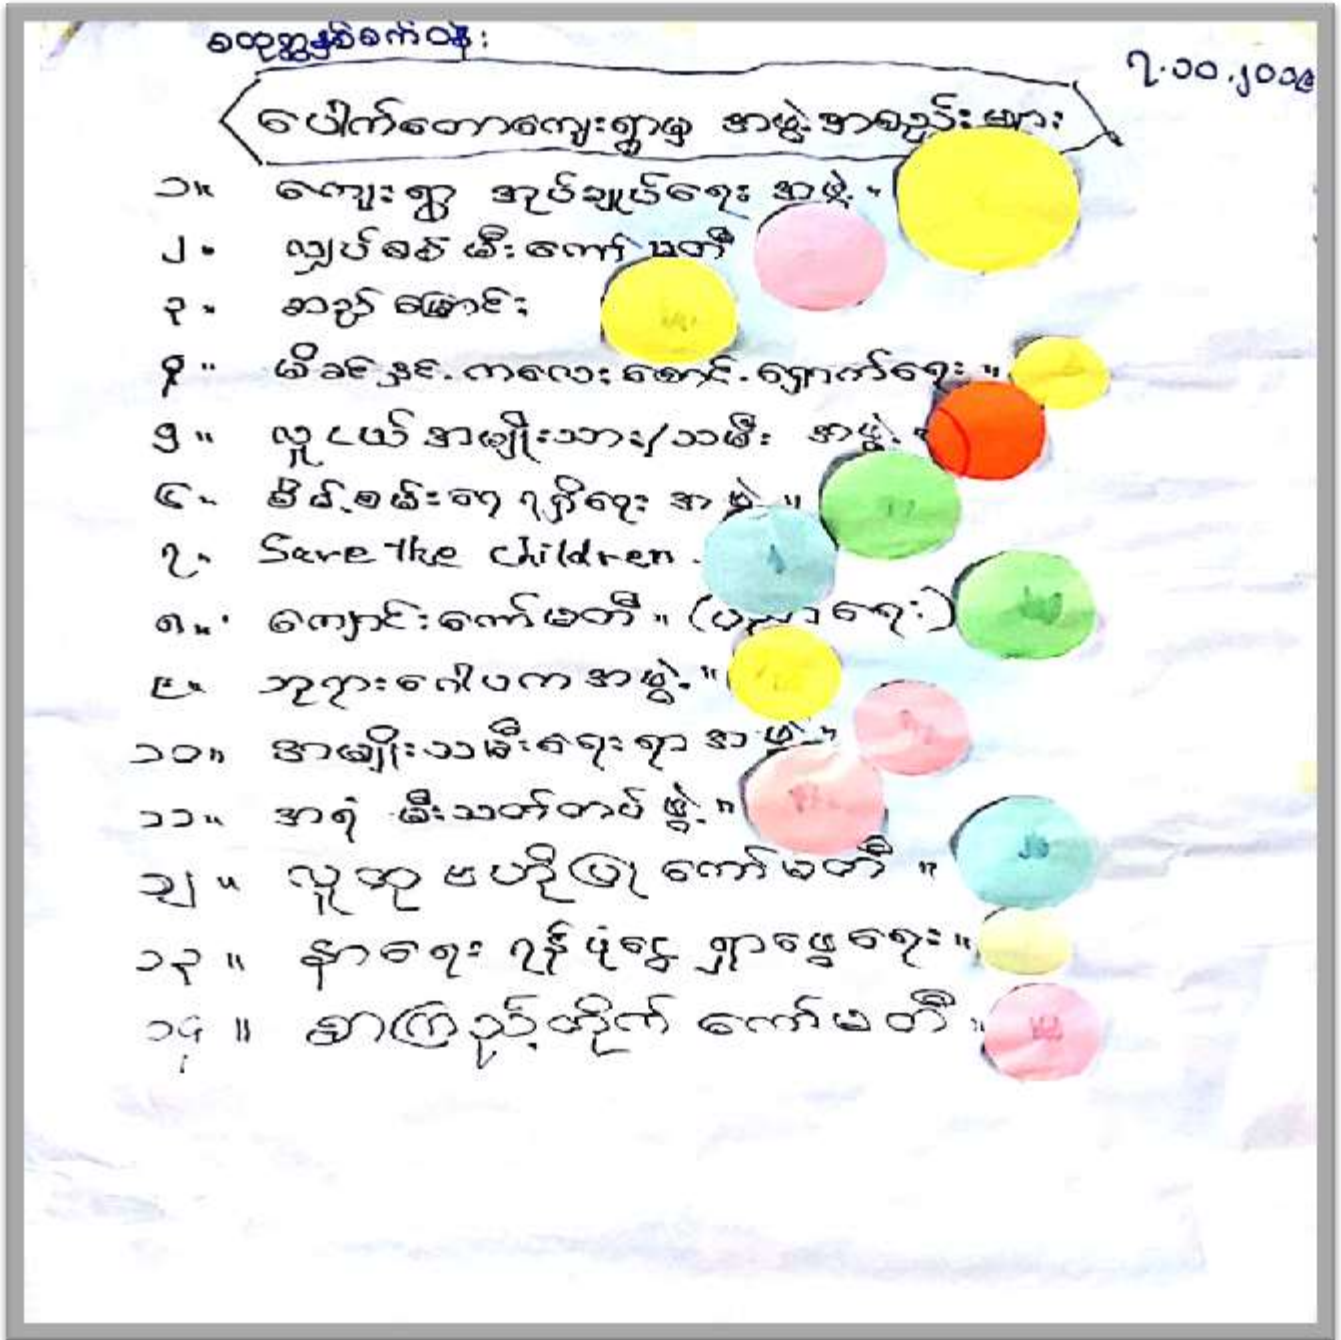 စတုတ္ထနှစ်စက်ဝန်း
၇.၁၀.၂၀၁၉
ပေါက်တောကျေးရွာမှ အဖွဲ့အစည်းများ
၁။ ကျေးရွာ အုပ်ချုပ်ရေး အဖွဲ့။
၂။ လျှပ်စစ်မီးကော်မတီ
၃။ ဆည်မြောင်း
၄။ မိခင်နှင့်ကလေးစောင့်ရှောက်ရေး။
၅။ လူငယ်အမျိုးသား/သမီး အဖွဲ့။
၆။ စိမ့်စမ်းရေရရှိရေး အဖွဲ့။
၇။ Save the children.
၈။ ကျောင်းကော်မတီ။ (ပညာရေး)
၉။ ဘုရားဂေါပကအဖွဲ့။
၁၀။ အမျိုးသမီးရေးရာ အဖွဲ့။
၁၁။ အရံ မီးသတ်တပ်ဖွဲ့။
၁၂။ လူထုဗဟိုပြု ကော်မတီ။
၁၃။ နာရေး ရန်ပုံငွေ ရှာဖွေရေး။
၁၄။ စာကြည့်တိုက် ကော်မတီ။